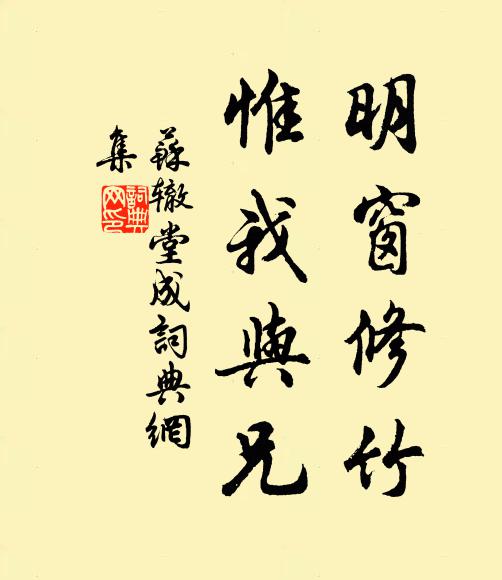 明窗修竹
惟我與兄
蘇辙堂成詞典網
集
詞典
网印